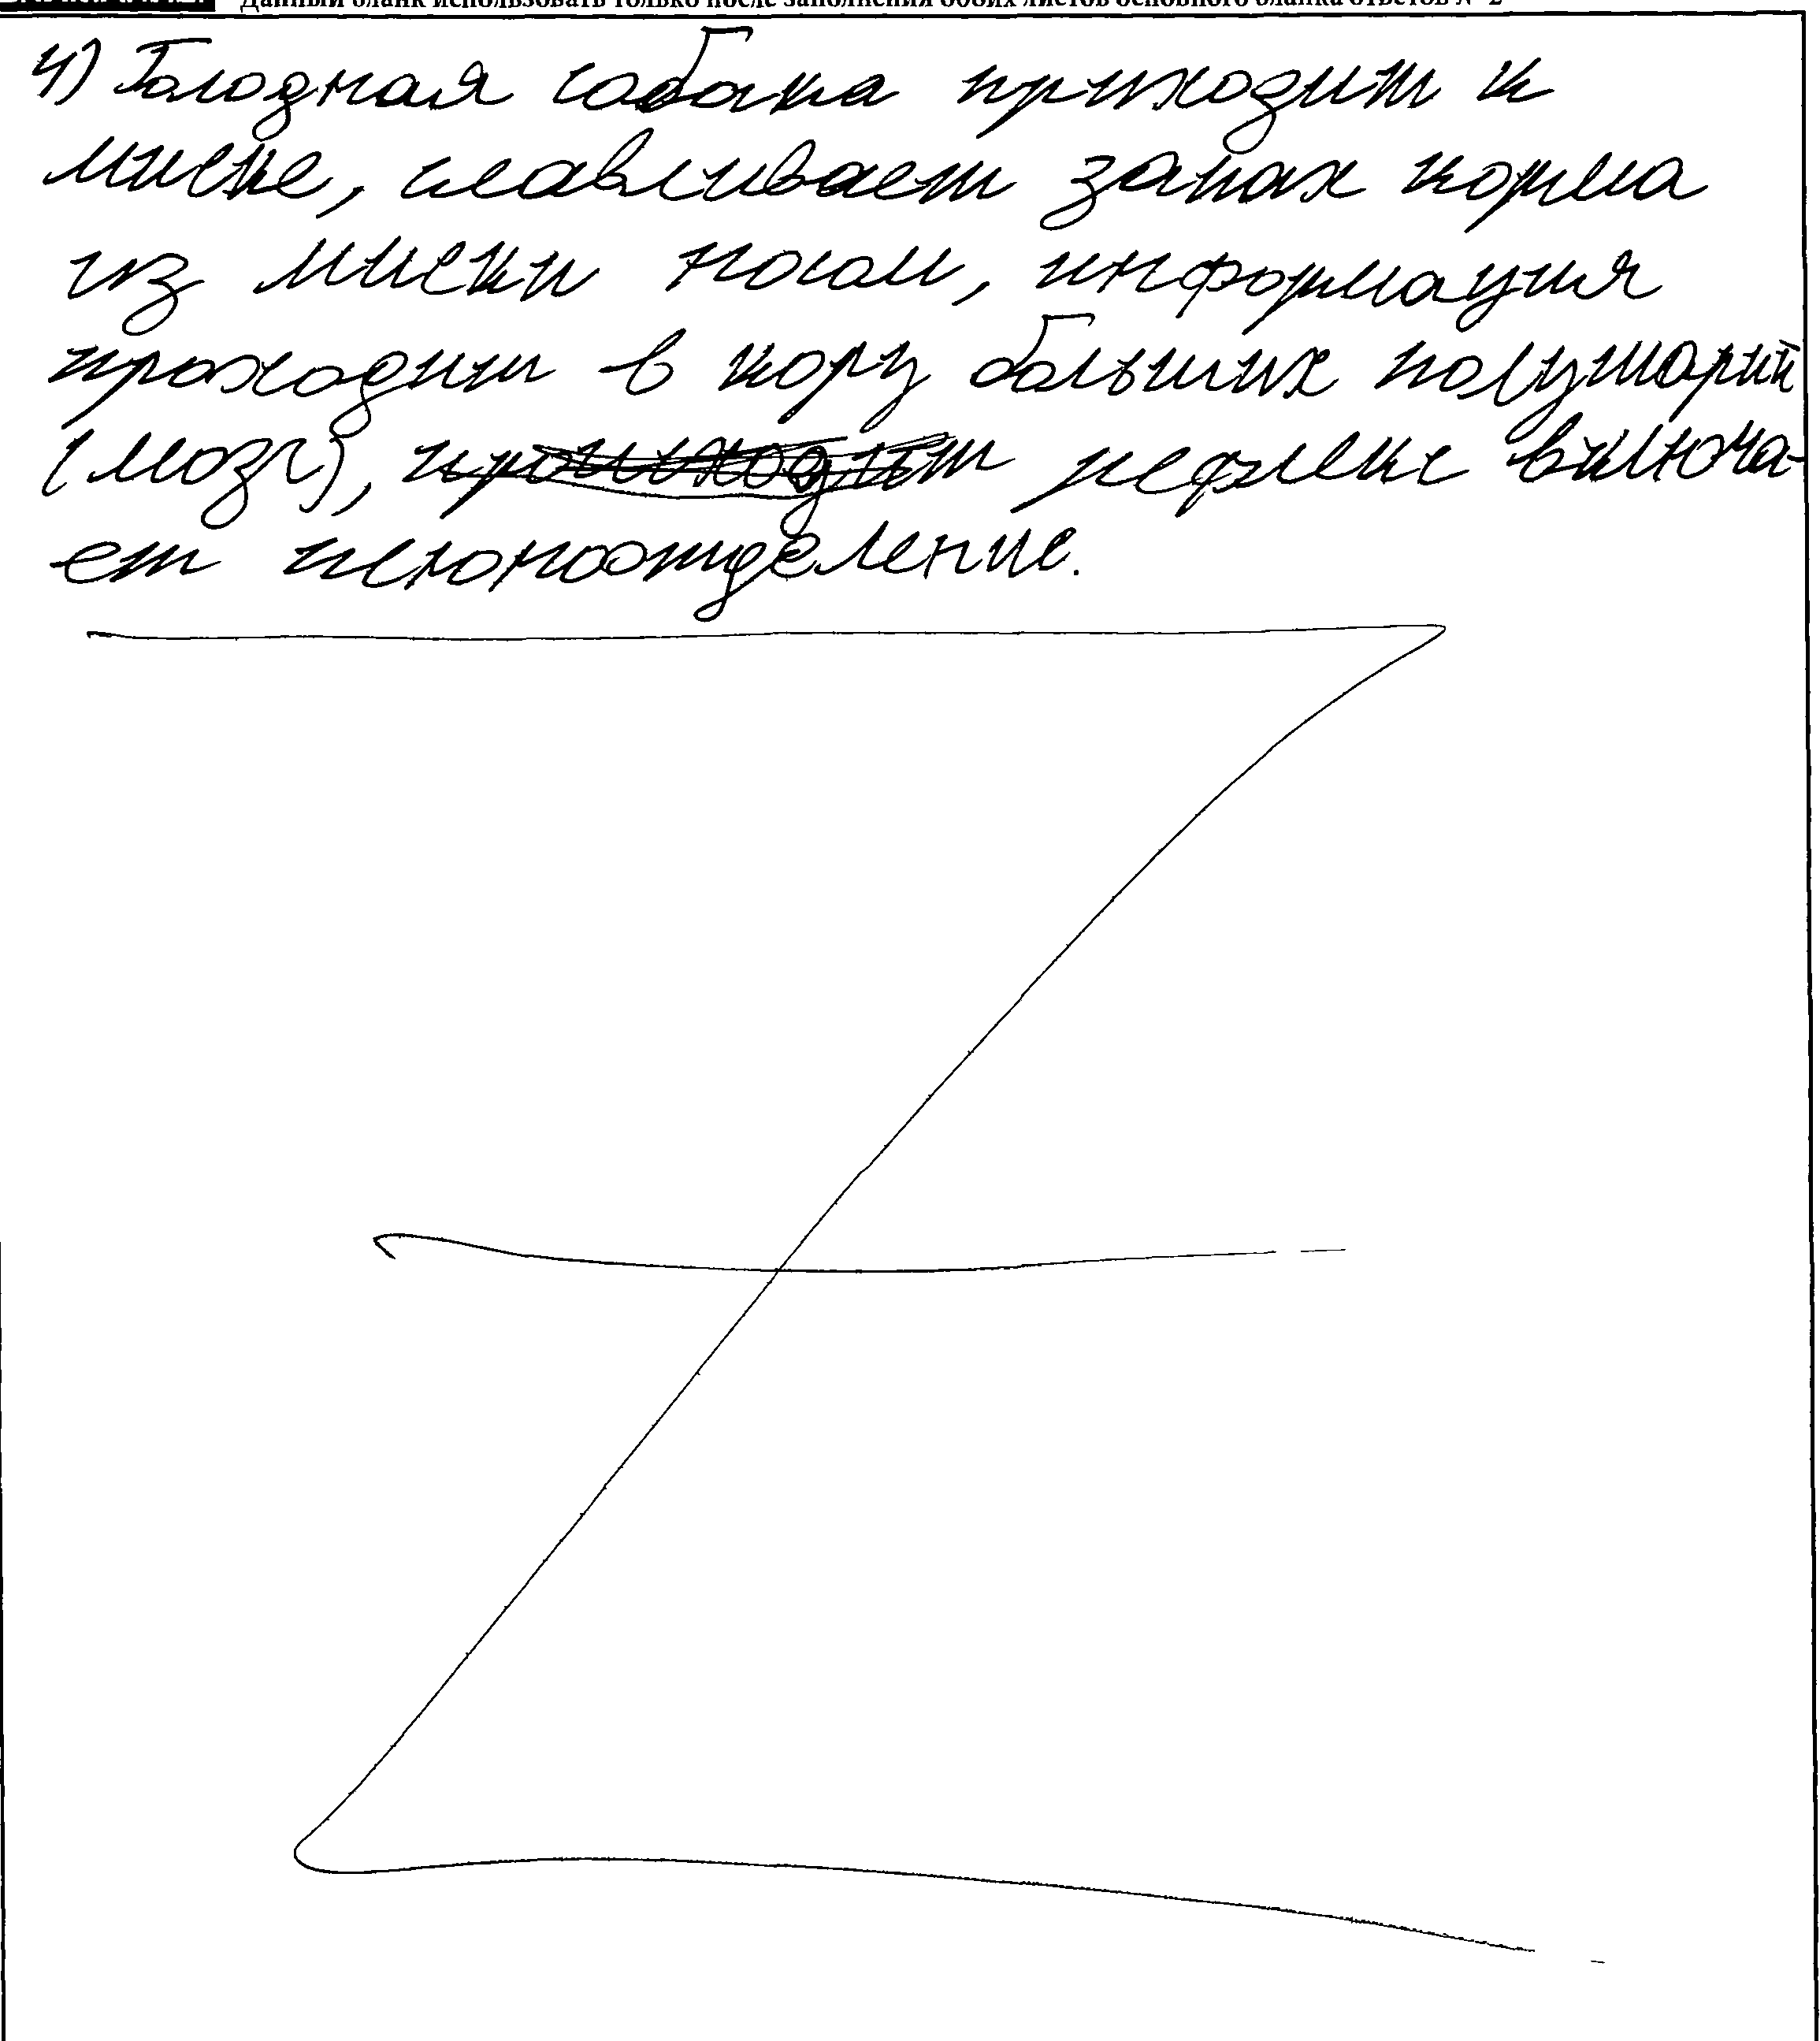 Данный бланк использовать только после заполнения обоих листов основного бланка ответов № 2
4) Голодная собака приходит к
миске, улавливает запах корма
из миски носом, информация
проходит в кору больших полушарий
(мозг), рефлекс включа-
ет слюноотделение.